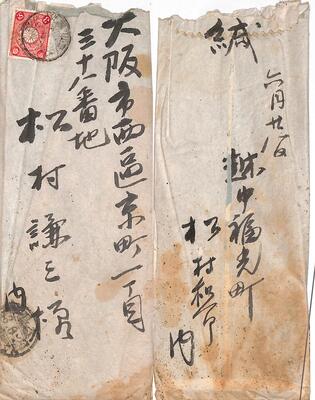 大阪市西區京町一丁目
三十八番地
松村謙三様
内
緘
六月廿八日
越中福光町
松村和一郎
内